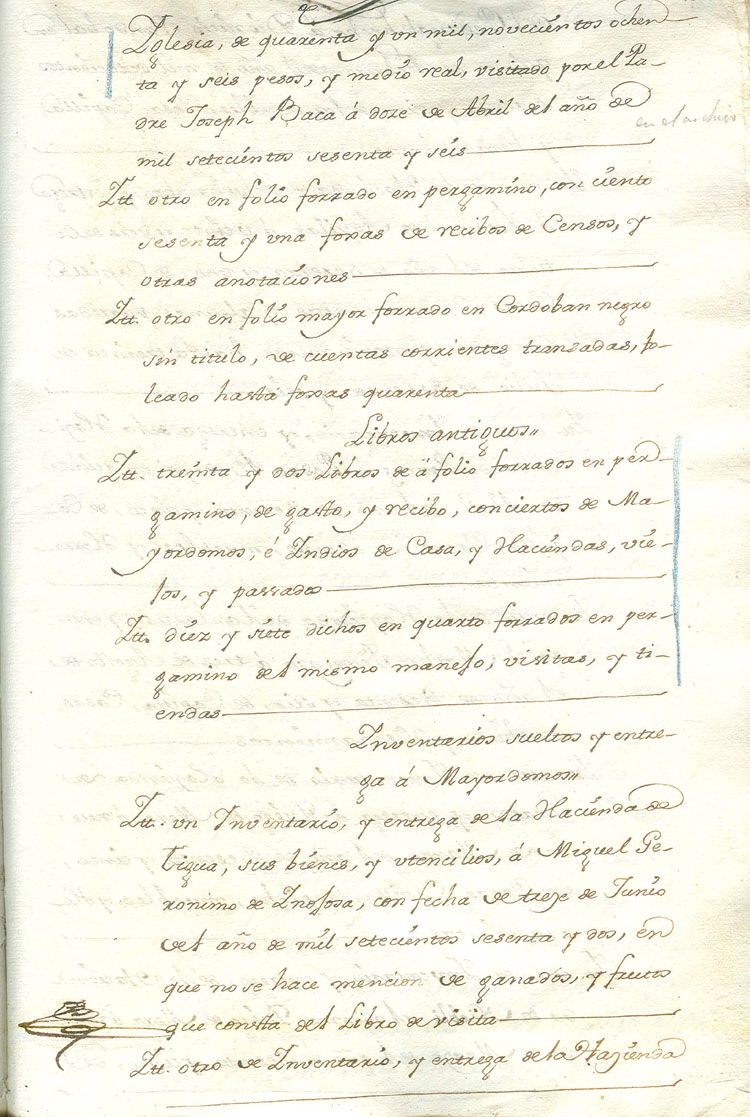 Iglesia, de quarenta y un mil, novecientos ochen
ta y seis pesos, y medio real, visitado por el Pa-
dre Joseph Baca á doze de Abril del año de
en el archivo
mil setecientos sesenta y seis
Itt. otro en folio forrado en pergamino, con ciento
sesenta y una foxas de recibos de Censos, y
otras anotaciones
Itt. otro en folio mayor forrado en Cordoban negro
sin titulo, de cuentas corrientes transadas, fo-
leado hasta foxas quarenta
Libros antiguos"
Itt. treinta y dos Libros de á folio forrados en per-
gamino, de gasto, y recibo, conciertos de Ma-
yordomos, é Indios de Casa, y Haciendas, vie-
jos, y passados
Itt. diez y siete dichos en quarto forrados en per-
gamino del mismo manejo, visitas, y ti-
endas
Inventarios sueltos y entre-
ga á Mayordomos"
Itt. un Inventario, y entrega de la Hacienda de
Tigua, sus bienes, y utencilios, á Miguel Ge-
ronimo de Inojosa, con fecha de treze de Junio
del año de mil setecientos sesenta y dos, en
que no se hace mencion de ganados, y frutos
que consta del Libro de visita
Itt. otro de Inventario, y entrega de la Hazienda